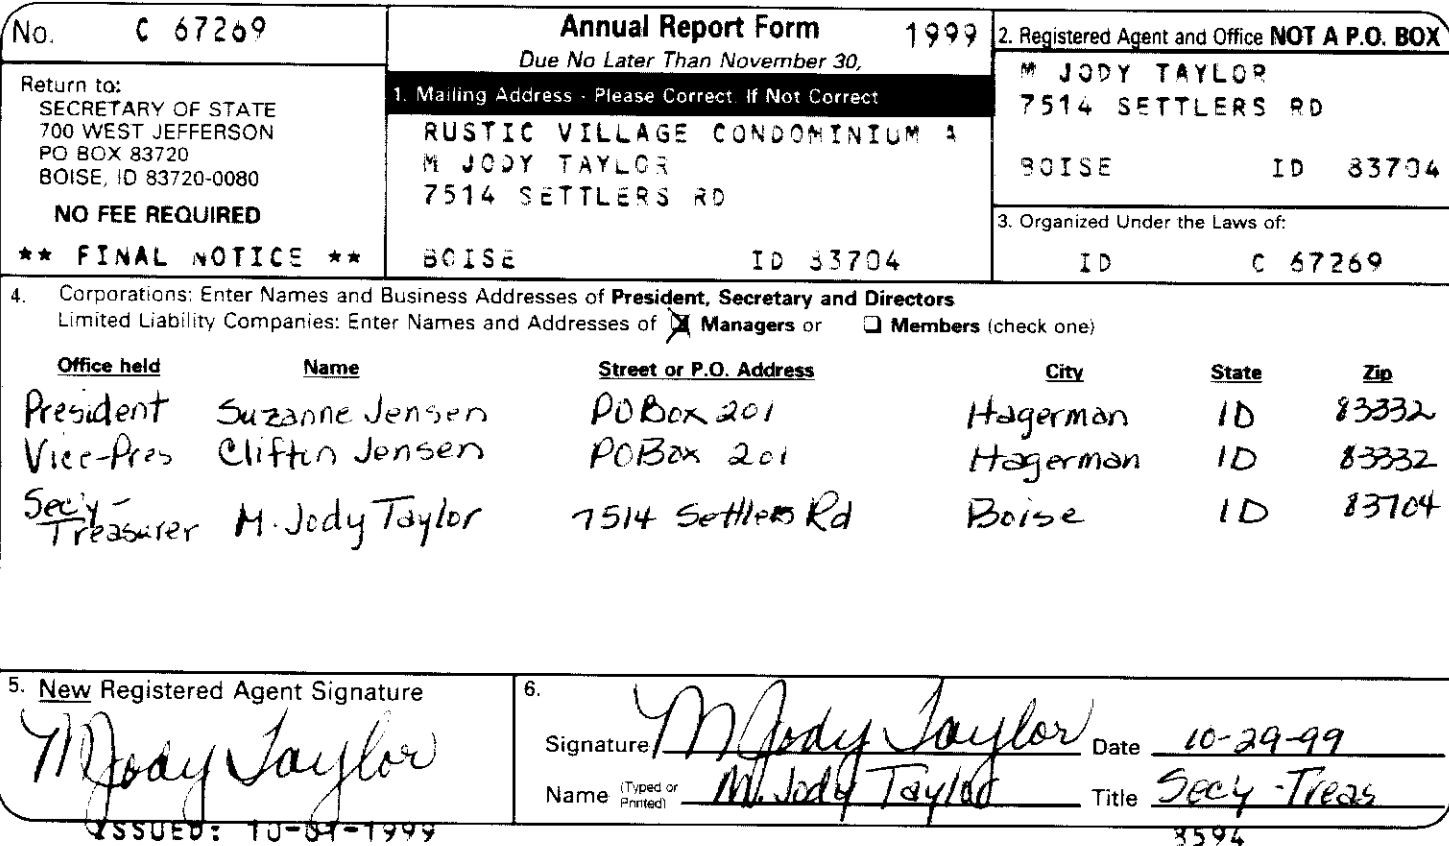 No. C 67269
Annual Report Form 1999
Due No Later Than November 30,
Return to:
SECRETARY OF STATE
700 WEST JEFFERSON
PO BOX 83720
BOISE, ID 83720-0080
NO FEE REQUIRED
** FINAL NOTICE **
1. Mailing Address - Please Correct If Not Correct
RUSTIC VILLAGE CONDOMINIUM A
M JODY TAYLOR
7514 SETTLERS RD
BOISE ID 83704
2. Registered Agent and Office NOT A P.O. BOX
M JODY TAYLOR
7514 SETTLERS RD
BOISE ID 83704
3. Organized Under the Laws of:
ID C 67269
4. Corporations: Enter Names and Business Addresses of President, Secretary and Directors
Limited Liability Companies: Enter Names and Addresses of Managers or Members (check one)
Office held Name Street or P.O. Address City State Zip
President Suzanne Jensen PO Box 201 Hagerman ID 83332
Vice-Pres Clifton Jensen PO Box 201 Hagerman ID 83332
Sec'y-
Treasurer M. Jody Taylor 7514 Settlers Rd Boise ID 83704
5. New Registered Agent Signature
M Jody Taylor
6.
Signature M Jody Taylor Date 10-29-99
Name (Typed or Printed) M. Jody Taylor Title Secy-Treas
ISSUED: 10-01-1999
3594